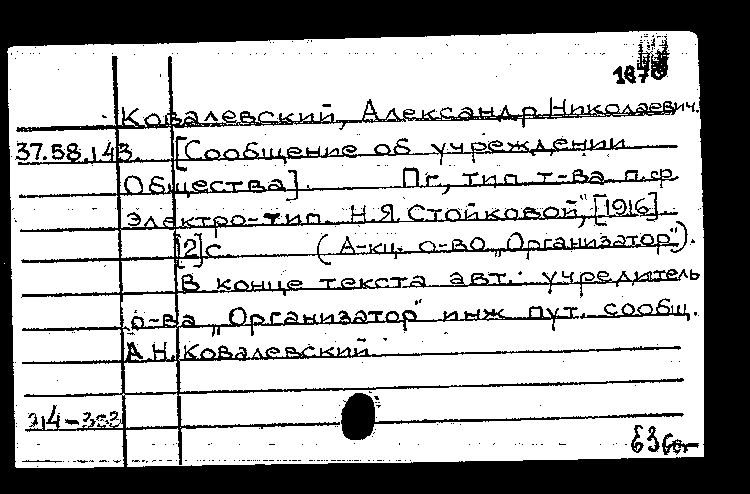 Ковалевский, Александр Николаевич.
37.58.143. [Сообщение об учреждении
Общества]. Пг, тип т-ва п.ф
электро-тип. Н.Я. Стойковой," [1916].
[2]с. (А-кц. о-во „Организатор").
В конце текста авт.: учредитель
о-ва „Организатор" инж пут. сообщ.
А.Н. Ковалевский.